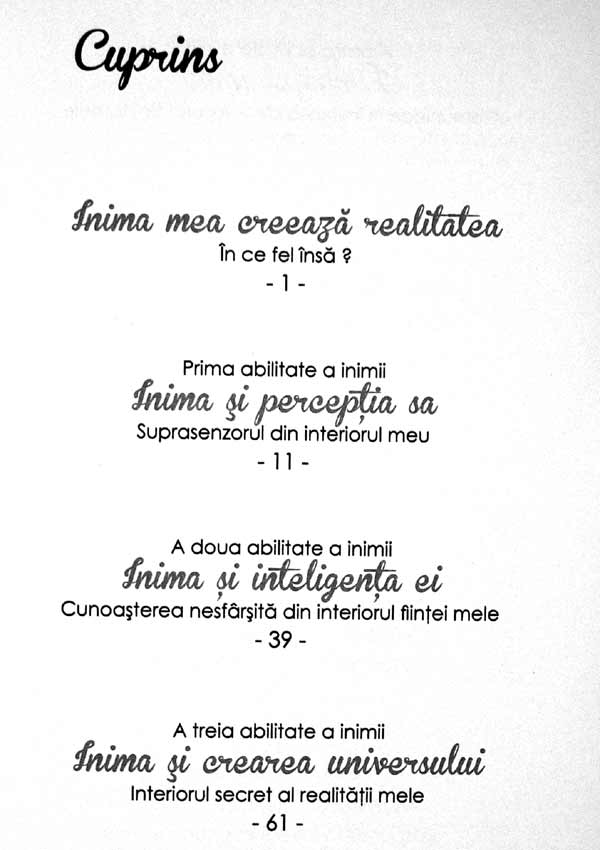 Cuprins
Inima mea creează realitatea
În ce fel însă ?
- 1 -
Prima abilitate a inimii
Inima şi percepția sa
Suprasenzorul din interiorul meu
- 11 -
A doua abilitate a inimii
Inima și inteligența ei
Cunoaşterea nesfârşită din interiorul ființei mele
- 39 -
A treia abilitate a inimii
Inima şi crearea universului
Interiorul secret al realității mele
- 61 -